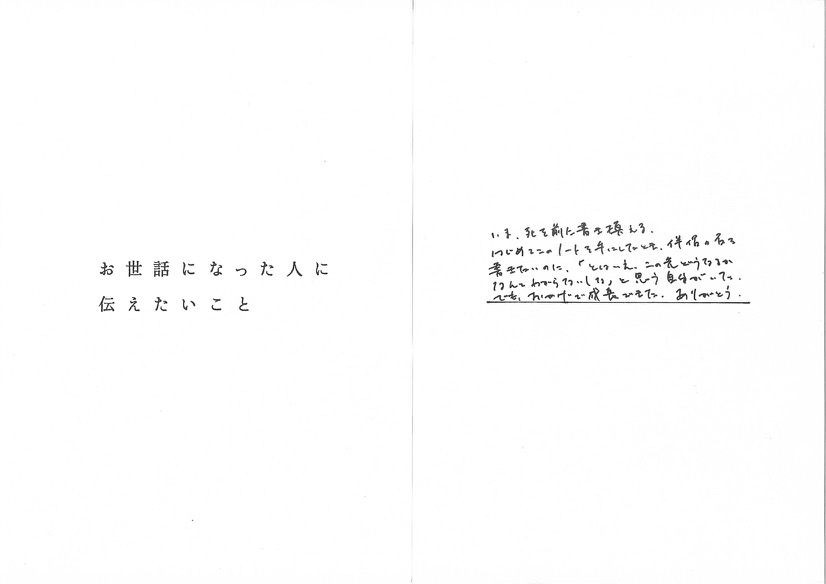 お世話になった人に
伝えたいこと
いま、死を前に書き換える。
はじめてこのノートを手にしたとき、伴侶の名を
書きたいのに、「とはいえ、この先どうなるか
なんてわからないしな」と思う自分がいた。
でも、おかげで成長できた。ありがとう。